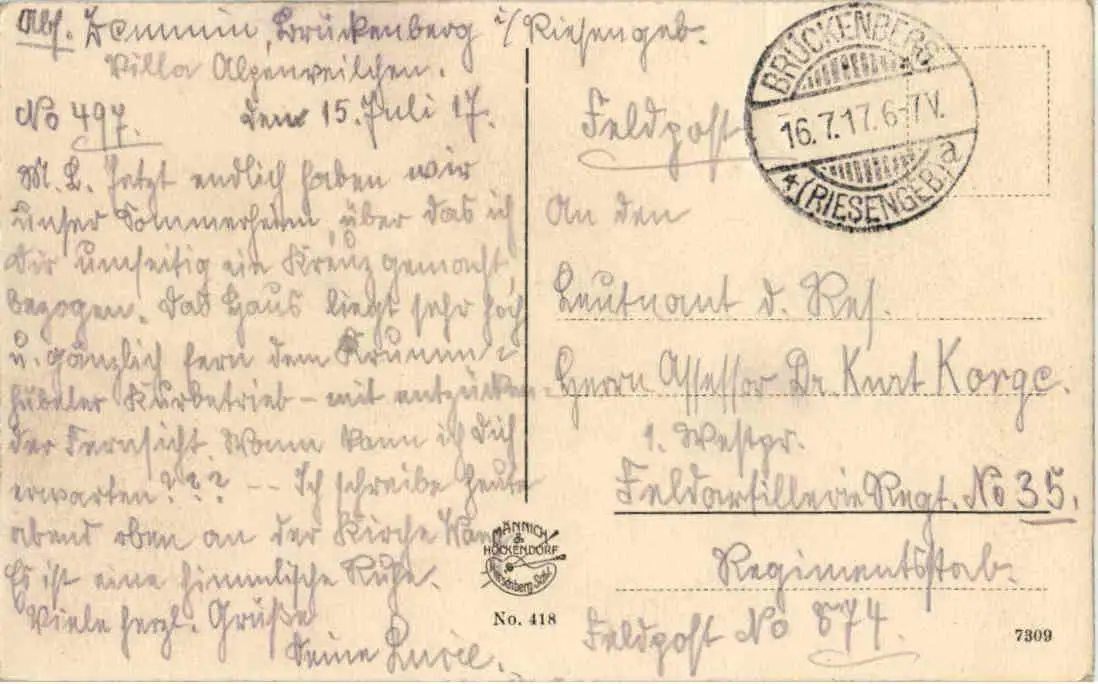 Abs. Demmin, Brückenberg i/Riesengeb.
Villa Alpenveilchen.
No 497. den 15. Juli 17.
M. L. Jetzt endlich haben wir
unser Sommerheim, über das ich
Dir umseitig ein Kreuz gemacht,
bezogen. Das Haus liegt sehr hoch
u. gänzlich fern dem Krumm-
hübeler Kurbetrieb - mit entzücken-
der Fernsicht. Wann kann ich Dich
erwarten??? -- Ich schreibe heute
abend oben an der Kirche
Es ist eine himmlische Ruhe.
Viele herzl. Grüße
Deine Lucie.
Feldpost
An den
Leutnant d. Res.
Herrn Assessor Dr. Kurt Korge.
1. Westpr.
Feldartillerie Regt. No 35.
Regimentsstab.
Feldpost No 874.
BRÜCKENBERG
16.7.17.6-7V.
* (RIESENGEB.) a
MÄNNICH
&
HÖCKENDORF
No. 418
7309